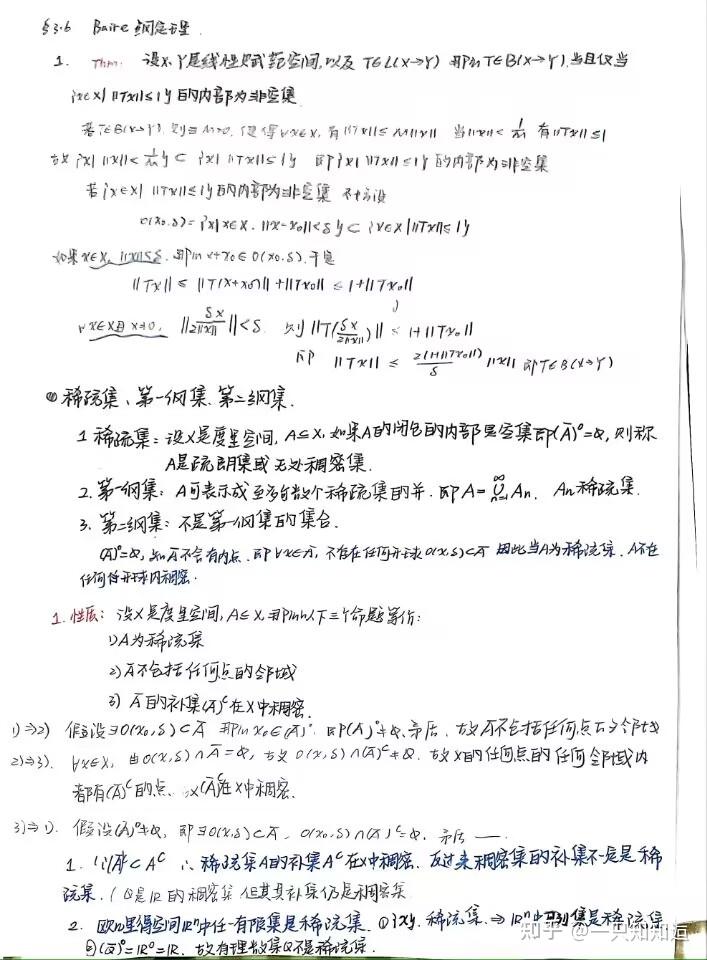 §3.6 Baire 纲定理
1. Thm: 设X,Y是线性赋范空间,以及 T∈L(X→Y) 那么T∈B(X→Y),当且仅当
{x∈X| ||Tx||≤1}的内部为非空集
若T∈B(X→Y),则∃M>0,使得∀x∈X,有||Tx||≤M||x|| 当||x||<1/M 有||Tx||≤1
故{x| ||x||<1/M}⊂{x| ||Tx||≤1} 即{x| ||Tx||≤1}的内部为非空集
若{x∈X| ||Tx||≤1}的内部为非空集 不妨设
O(x₀,δ)={x|x∈X, ||x-x₀||<δ}⊂{x∈X| ||Tx||≤1}
如果x∈X, ||x||<δ,那么x+x₀∈O(x₀,δ),于是
||Tx||≤||T(x+x₀)||+||Tx₀||≤1+||Tx₀||
∀x∈X且x≠0, ||δx/2||x||||<δ, 则||T(δx/2||x||)||≤1+||Tx₀||
即 ||Tx||≤2(1+||Tx₀||)/δ ||x|| 即T∈B(X→Y)
② 稀疏集、第一纲集、第二纲集.
1 稀疏集: 设X是度量空间, A⊆X, 如果A的闭包的内部是空集即(Ā)°=∅, 则称
A是疏朗集或无处稠密集.
2. 第一纲集: A可表示成至多可数个稀疏集的并. 即A=∪_{n=1}^∞ An. An稀疏集.
3. 第二纲集: 不是第一纲集的集合.
(Ā)°=∅, 知Ā不含有内点. 即∀x∈Ā, 不存在任何开球O(x,δ)⊂Ā 因此当A为稀疏集, A不在
任何开球内稠密.
1. 性质: 设X是度量空间, A⊆X, 那么以下三个命题等价:
1) A为稀疏集
2) Ā不包括任何点的邻域
3) Ā的补集(Ā)ᶜ在X中稠密.
1)⇒2) 假设∃O(x₀,δ)⊂Ā 那么x₀∈(Ā)°, 即(Ā)°≠∅, 矛盾. 故Ā不包括任何点的邻域
2)⇒3). ∀x∈X, 由O(x,δ)∩Ā=∅, 故O(x,δ)∩(Ā)ᶜ≠∅. 故X的任何点的任何邻域内
都有(Ā)ᶜ的点. 故(Ā)ᶜ在X中稠密.
3)⇒1). 假设(Ā)°≠∅, 即∃O(x,δ)⊂Ā, O(x₀,δ)∩(Ā)ᶜ=∅. 矛盾
1. ∵(Ā)ᶜ⊂Aᶜ ∴稀疏集A的补集Aᶜ在X中稠密. 反过来稠密集的补集不一定是稀
疏集. (Q是R的稠密集 但其补集仍是稠密集
2. 欧几里得空间Rⁿ中任一有限集是稀疏集. ①{x}, 稀疏集. ⇒Rⁿ中可列集是稀疏集
②(Q̄)°=R°=R. 故有理数集Q不是稀疏集.
知乎 @一只知知逗